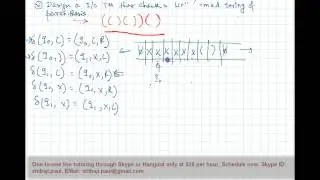 Design a I/o TM that Checks a well formed string of
parenthesis
( ( ) ( ) ) ( )
δ(q0, () = (q0, (, R)
δ(q0, )) = (q1, x, L)
δ(q0, x) = (q0, x, R)
δ(q1, () = (q0, x, R)
δ(q1, x) = (q1, x, L)
b x x x x x x ( ) b
q0
One to one live tutoring through Skype or Hangout only at $20 per hour, Schedule now. Skype ID: shibaji.paul, EMail: shibaji.paul@gmail.com